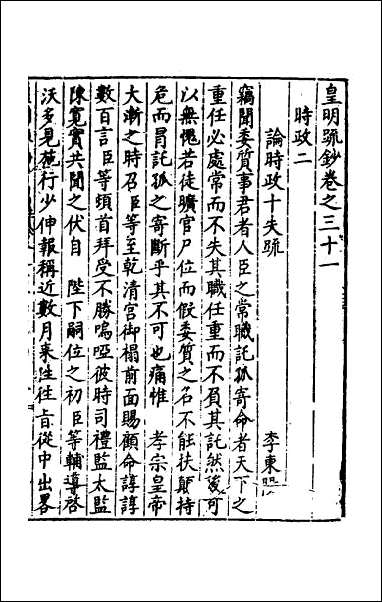 皇明疏鈔卷之三十一
時政二
論時政十失疏 李東陽
竊聞委質事君者人臣之常職託孤寄命者天下之
重任必處常而不失其職任重而不負其託然後可
以無愧若徒曠官尸位而假委質之名不能扶顛持
危而冒託孤之寄斷乎其不可也痛惟 孝宗皇帝
大漸之時召臣等至乾清宮御榻前面賜顧命諄諄
數百言臣等頓首拜受不勝嗚啞彼時司禮監太監
陳寬實共聞之伏自 陛下嗣位之初臣等輔導啓
沃多見施行少伸報稱近數月來往往旨從中出畧